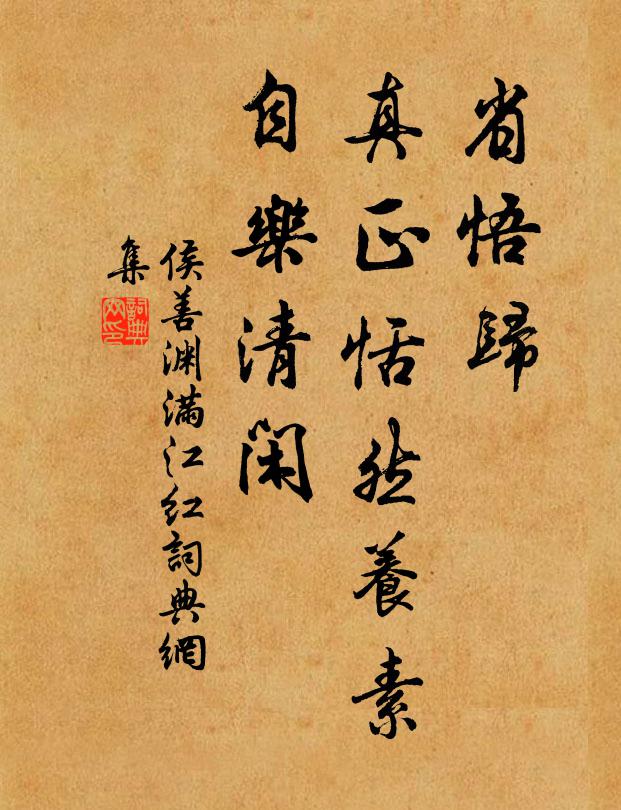 省悟歸
真正恬然養素
自樂清閑
侯善渊满江红詞典網
集
詞典